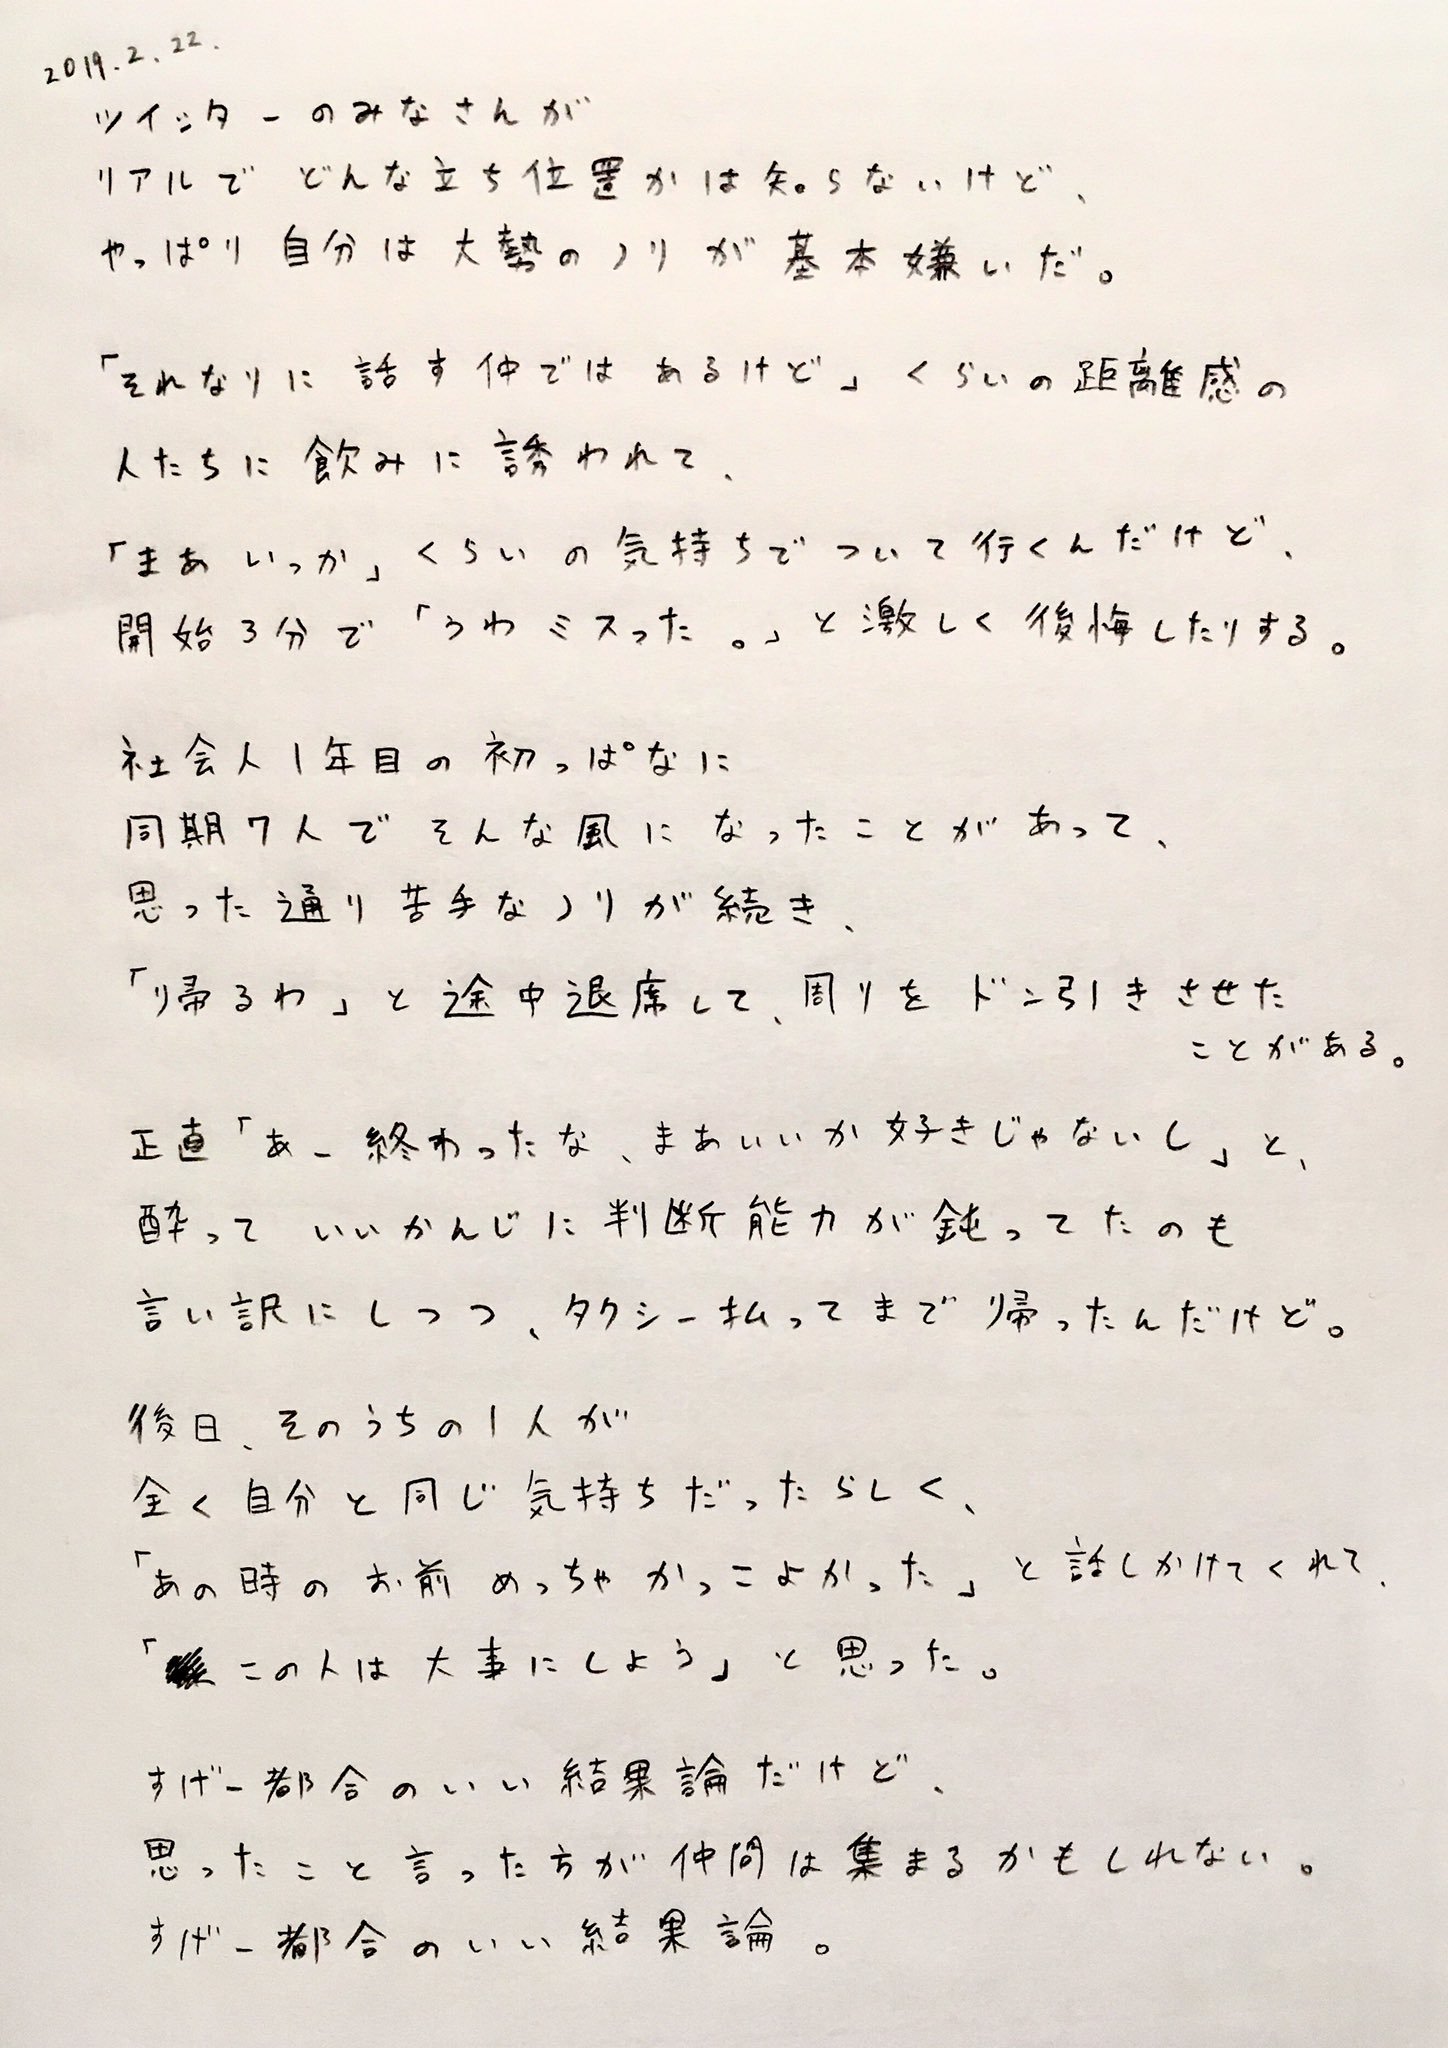 2019.2.22.
ツイッターのみなさんが
リアルで どんな立ち位置かは知らないけど、
やっぱり 自分は大勢のノリが基本嫌いだ。
「それなりに 話す仲では あるけど」くらいの距離感の
人たちに 飲みに 誘われて、
「まあ いっか」くらいの気持ちでついて行くんだけど、
開始3分で「うわ ミスった。」と激しく後悔したりする。
社会人1年目の初っぱなに
同期7人でそんな風になったことがあって、
思った通り苦手なノリが続き、
「帰るわ」と途中退席して、周りをドン引きさせた
ことがある。
正直「あー終わったな、まあいいか好きじゃないし」と、
酔って いいかんじに判断能力が鈍ってたのも
言い訳にしつつ、タクシー払ってまで帰ったんだけど。
後日、そのうちの1人が
全く自分と同じ気持ちだったらしく、
「あの時のお前 めっちゃ かっこよかった」と話しかけてくれて、
「この人は大事にしよう」と思った。
すげー都合のいい結果論だけど、
思ったこと言った方が仲間は集まるかもしれない。
すげー都合のいい結果論。